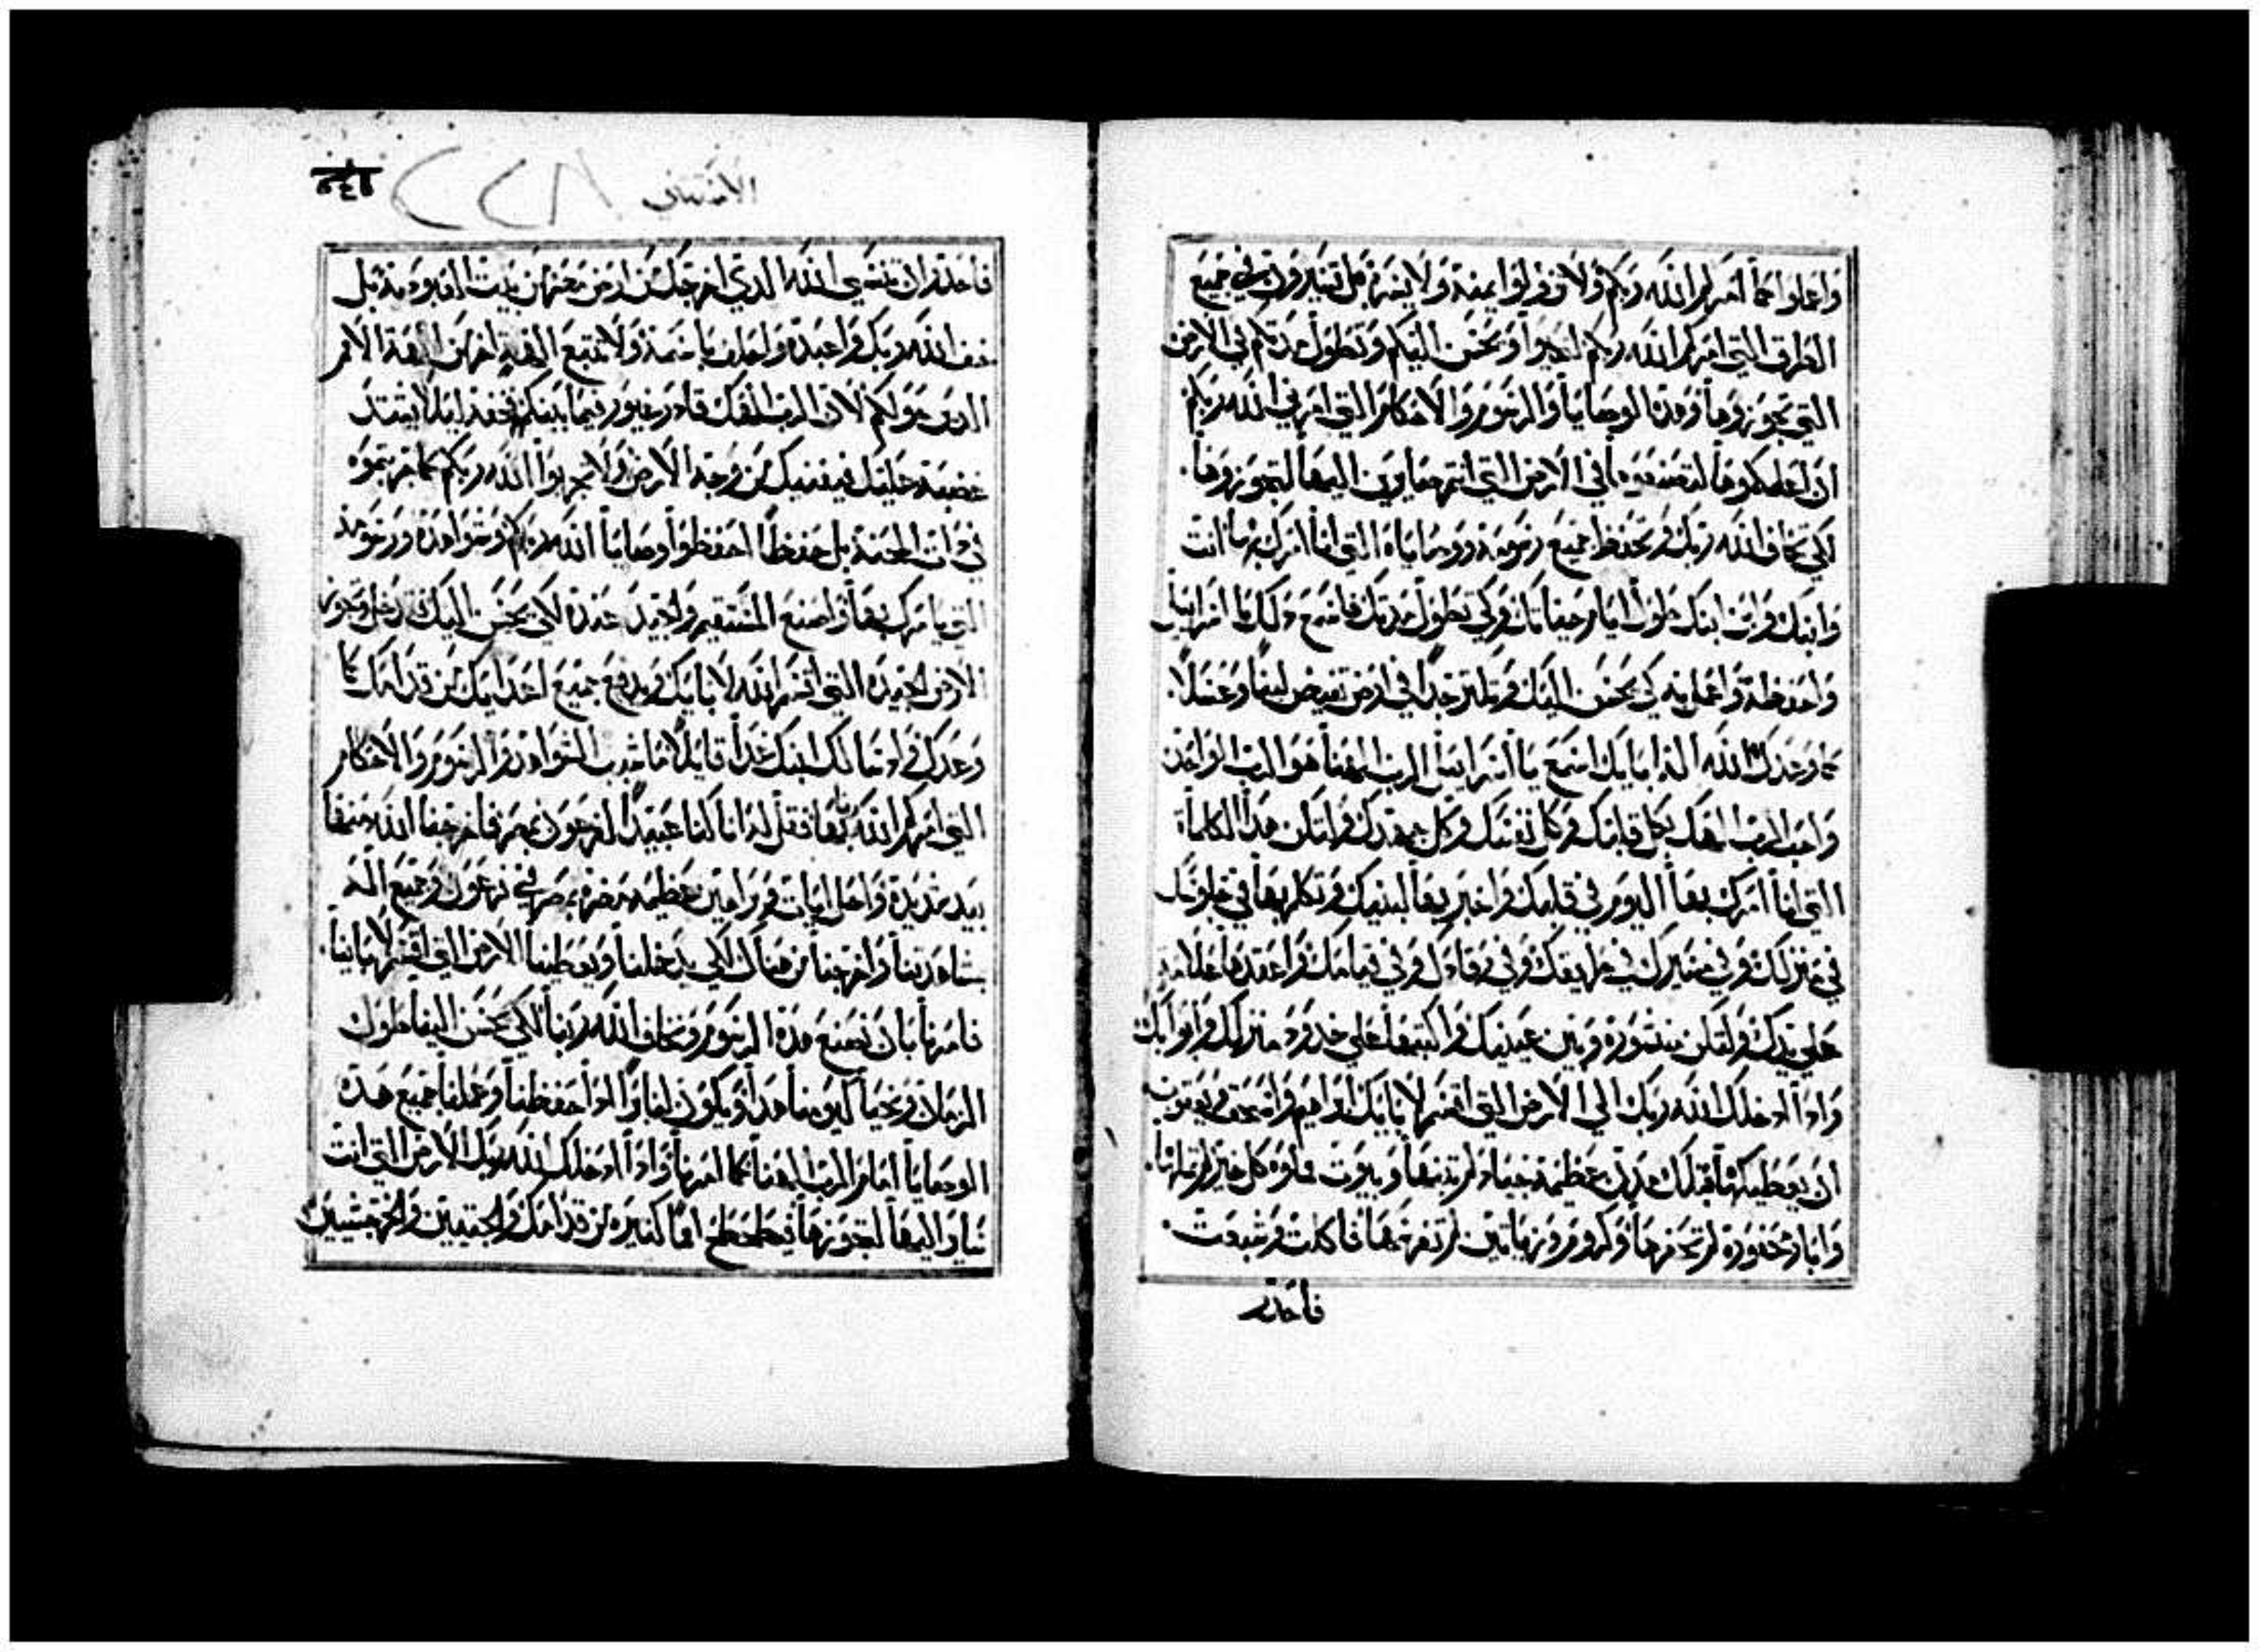 واعملوا كما امركم الله ربكم ولا تزولوا يمنة ولا يسرة بل تسيرون في جميع
الطرق التي امركم الله ربكم لتحيوا ويحسن اليكم وتطول مدتكم في الارض
التي تجوزوها وهذه الوصايا والرسوم والاحكام التي امرني الله ربكم
ان اعلمكوها لتصنعوها في الارض التي انتم صايرين اليها لتجوزوها.
لكي تخاف الله ربك وتحفظ جميع رسومه ووصاياه التي انا امرك بها انت
وابنك وابن ابنك طول ايام حياتك ولكي تطول مدتك فاسمع ذلك يا اسراييل
واحفظه واعمل به كي يحسن اليك وتكثر جدا في ارض تفيض لبنا وعسلا.
كما وعدك الله اله ابايك اسمع يا اسراييل الرب الهنا هو الرب الواحد
واحب الرب الهك بكل قلبك وكل نفسك وكل جهدك ولتكن هذه الكلمات
التي انا امرك بها اليوم في قلبك واخبر بها لبنيك وتكلم بها في جلوسك
في منزلك وفي مسيرك في طريقك وفي رقادك وفي قيامك واعقدها علامة
على يدك ولتكن منشورة وبين عينيك واكتبها على حدود منزلك وابوابك
واذا ادخلك الله ربك الي الارض التي اقسم لابايك ابراهيم واسحق ويعقوب
ان يعطيكها قبلك مدن عظيمة جياد لم تبنها وبيوت مملوة كل خير لم تملاها.
وابار محفورة لم تحفرها وكروم وزياتين لم تغرسها فاكلت وشبعت.
فاحذر
الاستثنى
٢٢٨
فاحذر ان تنسي الله الذي اخرجك من ارض مصر من بيت العبودية بل
خف الله ربك واعبده واحلف باسمه ولا تتبع الهة اخر من الهة الامم
الذين حولكم لان الرب الهك قادر غيور فيما بينكم فخفه ليلا يشتد
غضبه عليك فيفنيك من وجه الارض ولا تجربوا الله ربكم كما جربتموه
في ذات المحنة بل حفظا احفظوا وصايا الله ربكم وشواهده ورسومه
التي يامرك بها واصنع المستقيم والجيد عنده لكي يحسن اليك فتدخل وتجوز
الارض الجيدة التي اقسم الله لابايك ويدفع جميع اعدايك من قدامك كما
وعدك واذا سالك ابنك غدا قايلا ما هذه الشواهد والرسوم والاحكام
التي امركم الله ربنا بها فقل له انا كنا عبيدا لفرعون بمصر فاخرجنا الله منها
بيد شديدة واحل ايات وبراهين عظيمة مضرة بمصر في فرعون وجميع اله
بمشاهدتنا واخرجنا من هناك لكي يدخلنا ويعطينا الارض التي اقسم لاباينا.
فامرنا بان نصنع هذه الرسوم ونخاف الله ربنا لكي يحسن الينا طول
الزمان ونحيا كيومنا هذا ويكون لنا اذا حفظنا وعملنا جميع هذه
الوصايا امام الرب الهنا كما امرنا واذا ادخلك الله ربك الارض التي انت
صاير اليها لتجوزها فيطحطح امما كثيرة من قدامك والحيتيين والجرجسيين